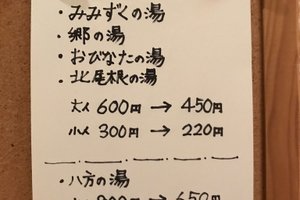 ・みみずくの湯
・郷の湯
・おびなたの湯
・北尾根の湯
大人 600円 → 450円
小人 300円 → 220円
・八方の湯